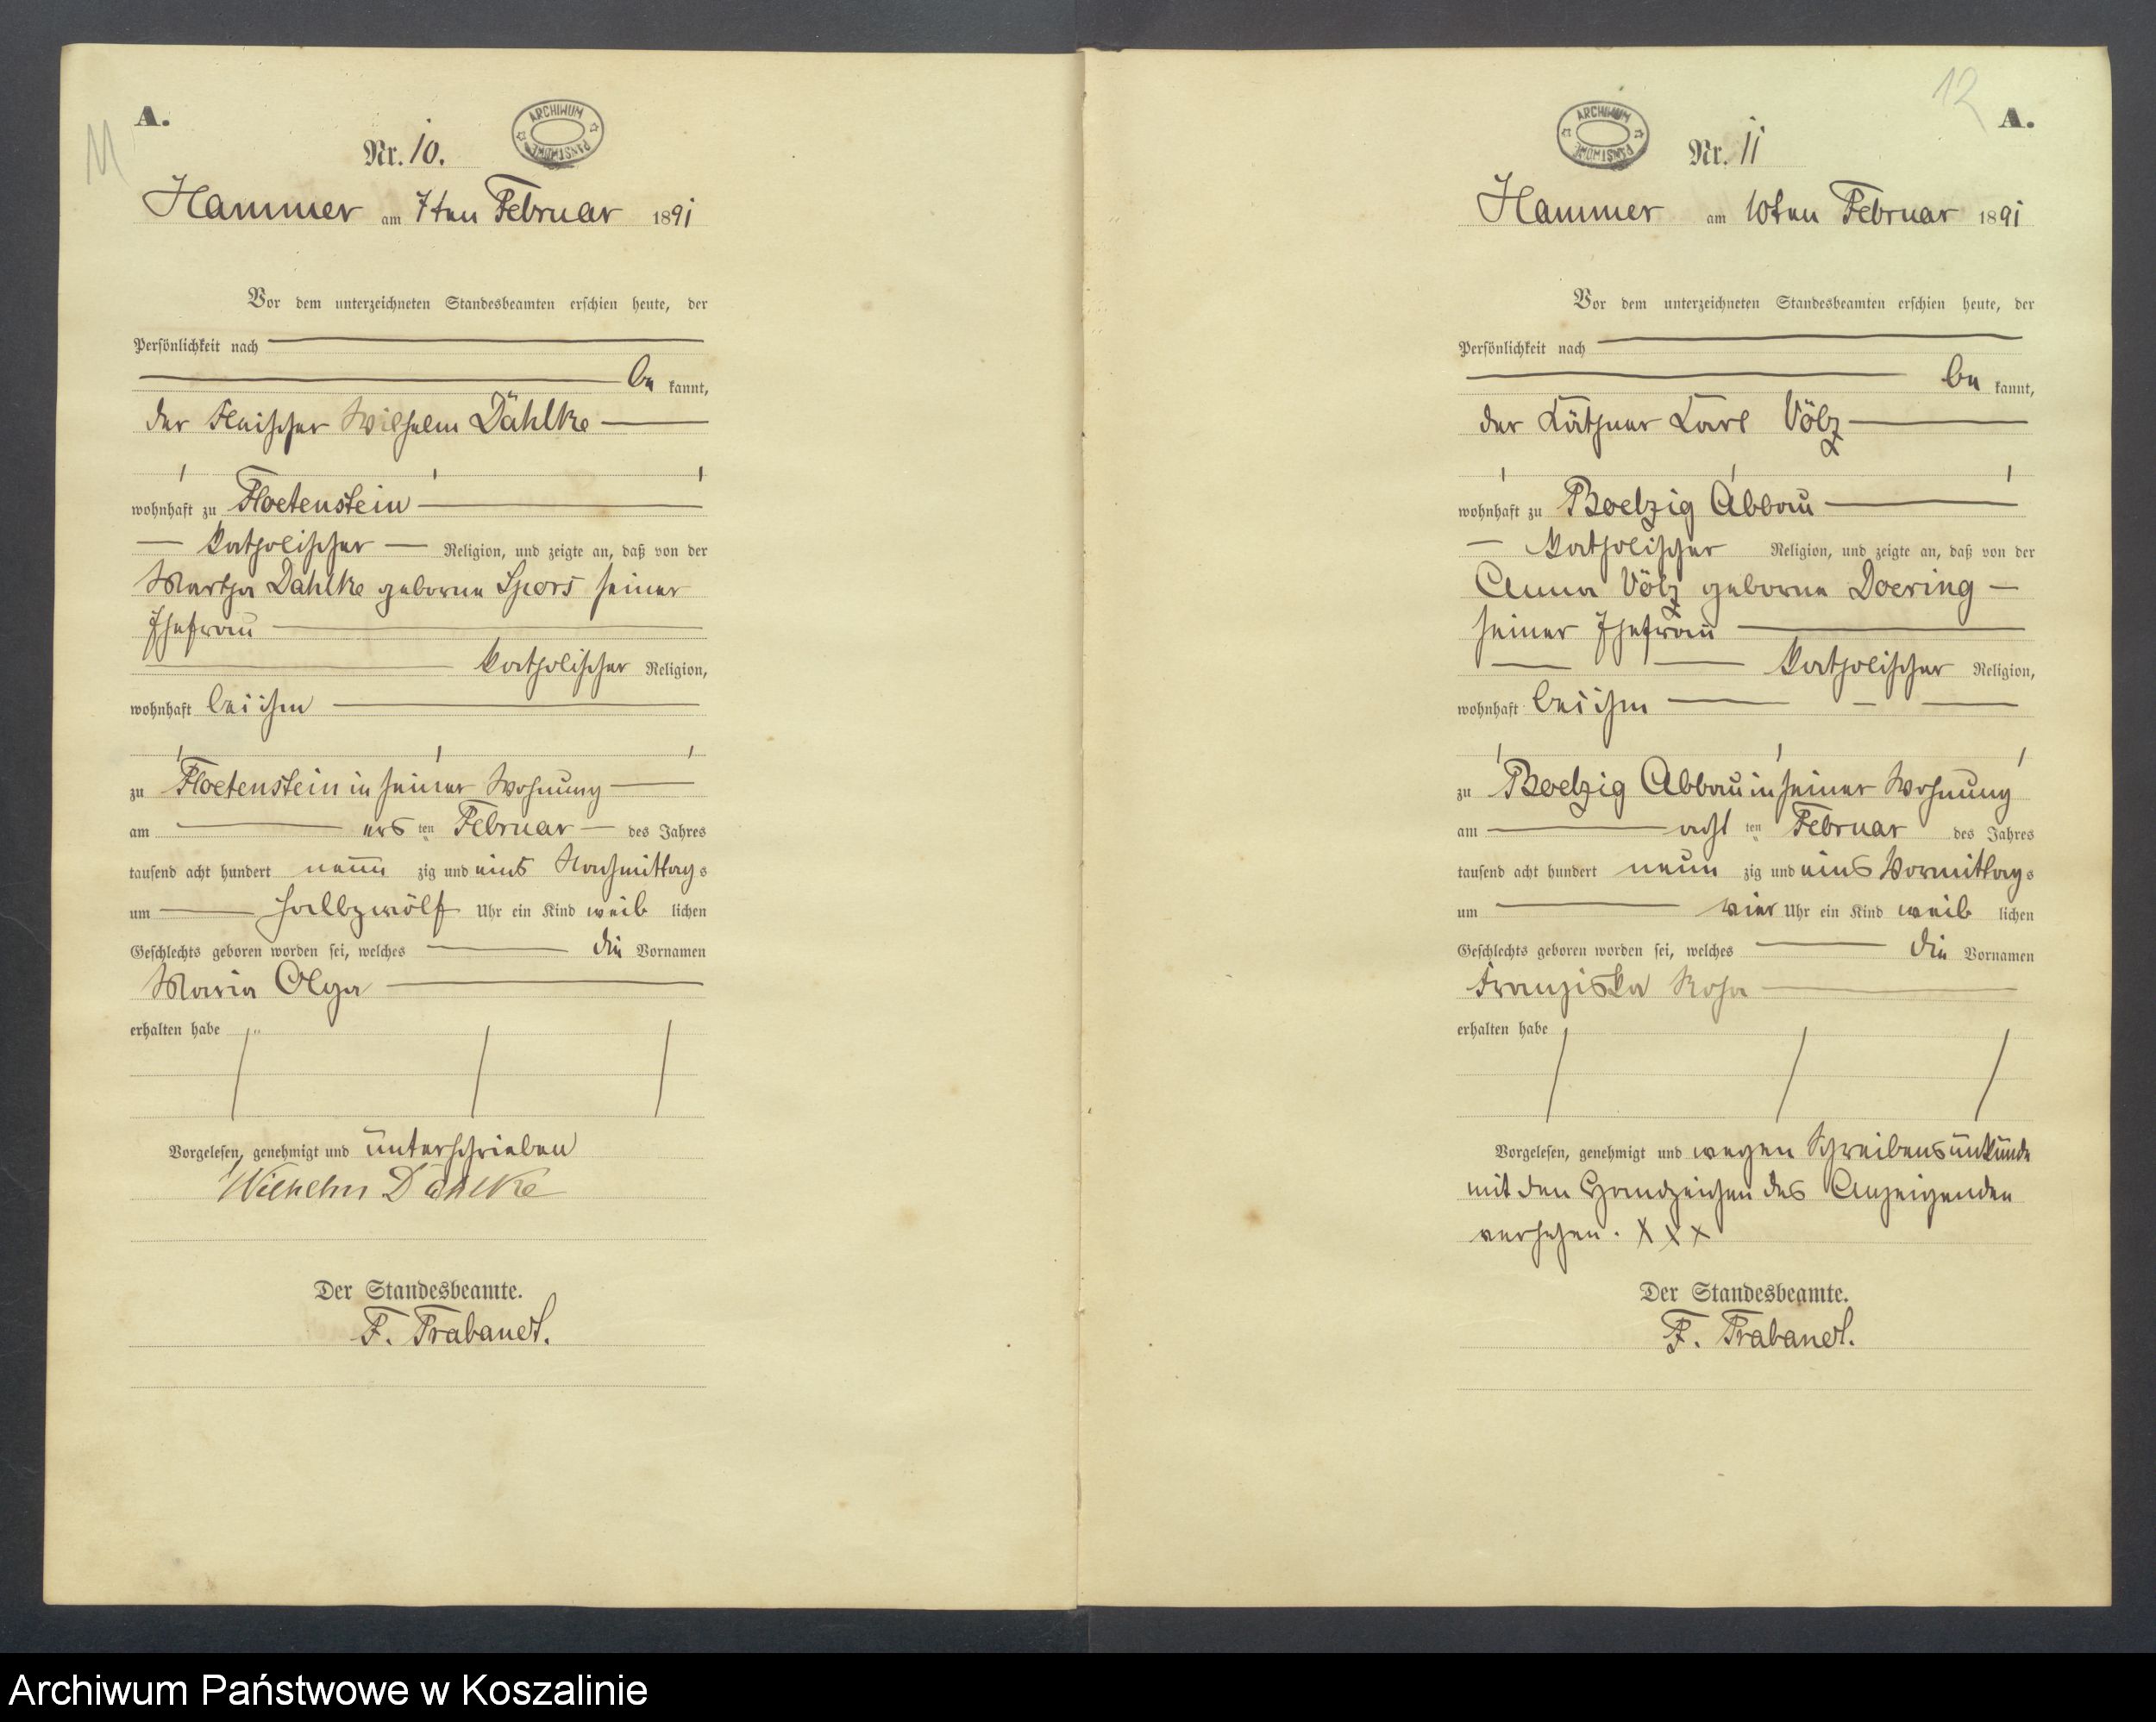 11
A.
Nr. 10.
ARCHIWUM PAŃSTWOWE
Hammer am 7ten Februar 1891
Vor dem unterzeichneten Standesbeamten erschien heute, der
Persönlichkeit nach
be kannt,
der Fleischer Wilhelm Dahlke
wohnhaft zu Floetenstein
katholischer Religion, und zeigte an, daß von der
Martha Dahlke geborne Spors seiner
Ehefrau
katholischer Religion,
wohnhaft bei ihm
zu Floetenstein in seiner Wohnung
am ers ten Februar des Jahres
tausend acht hundert neun zig und eins Nachmittags
um halbzwölf Uhr ein Kind weib lichen
Geschlechts geboren worden sei, welches die Vornamen
Maria Olga
erhalten habe
Vorgelesen, genehmigt und unterschrieben
Wilhelm Dahlke
Der Standesbeamte.
F. Trabandt.
12
A.
ARCHIWUM PAŃSTWOWE
Nr. 11
Hammer am 10ten Februar 1891
Vor dem unterzeichneten Standesbeamten erschien heute, der
Persönlichkeit nach
be kannt,
der Käthner Karl Völz
wohnhaft zu Boelzig Abbau
katholischer Religion, und zeigte an, daß von der
Anna Völz geborne Doering
seiner Ehefrau
katholischer Religion,
wohnhaft bei ihm
zu Boelzig Abbau in seiner Wohnung
am acht ten Februar des Jahres
tausend acht hundert neun zig und eins Vormittags
um vier Uhr ein Kind weib lichen
Geschlechts geboren worden sei, welches die Vornamen
Franziska Rosa
erhalten habe
Vorgelesen, genehmigt und wegen Schreibensunkunde
mit den Handzeichen des Anzeigenden
versehen. X X X
Der Standesbeamte.
F. Trabandt.
Archiwum Państwowe w Koszalinie